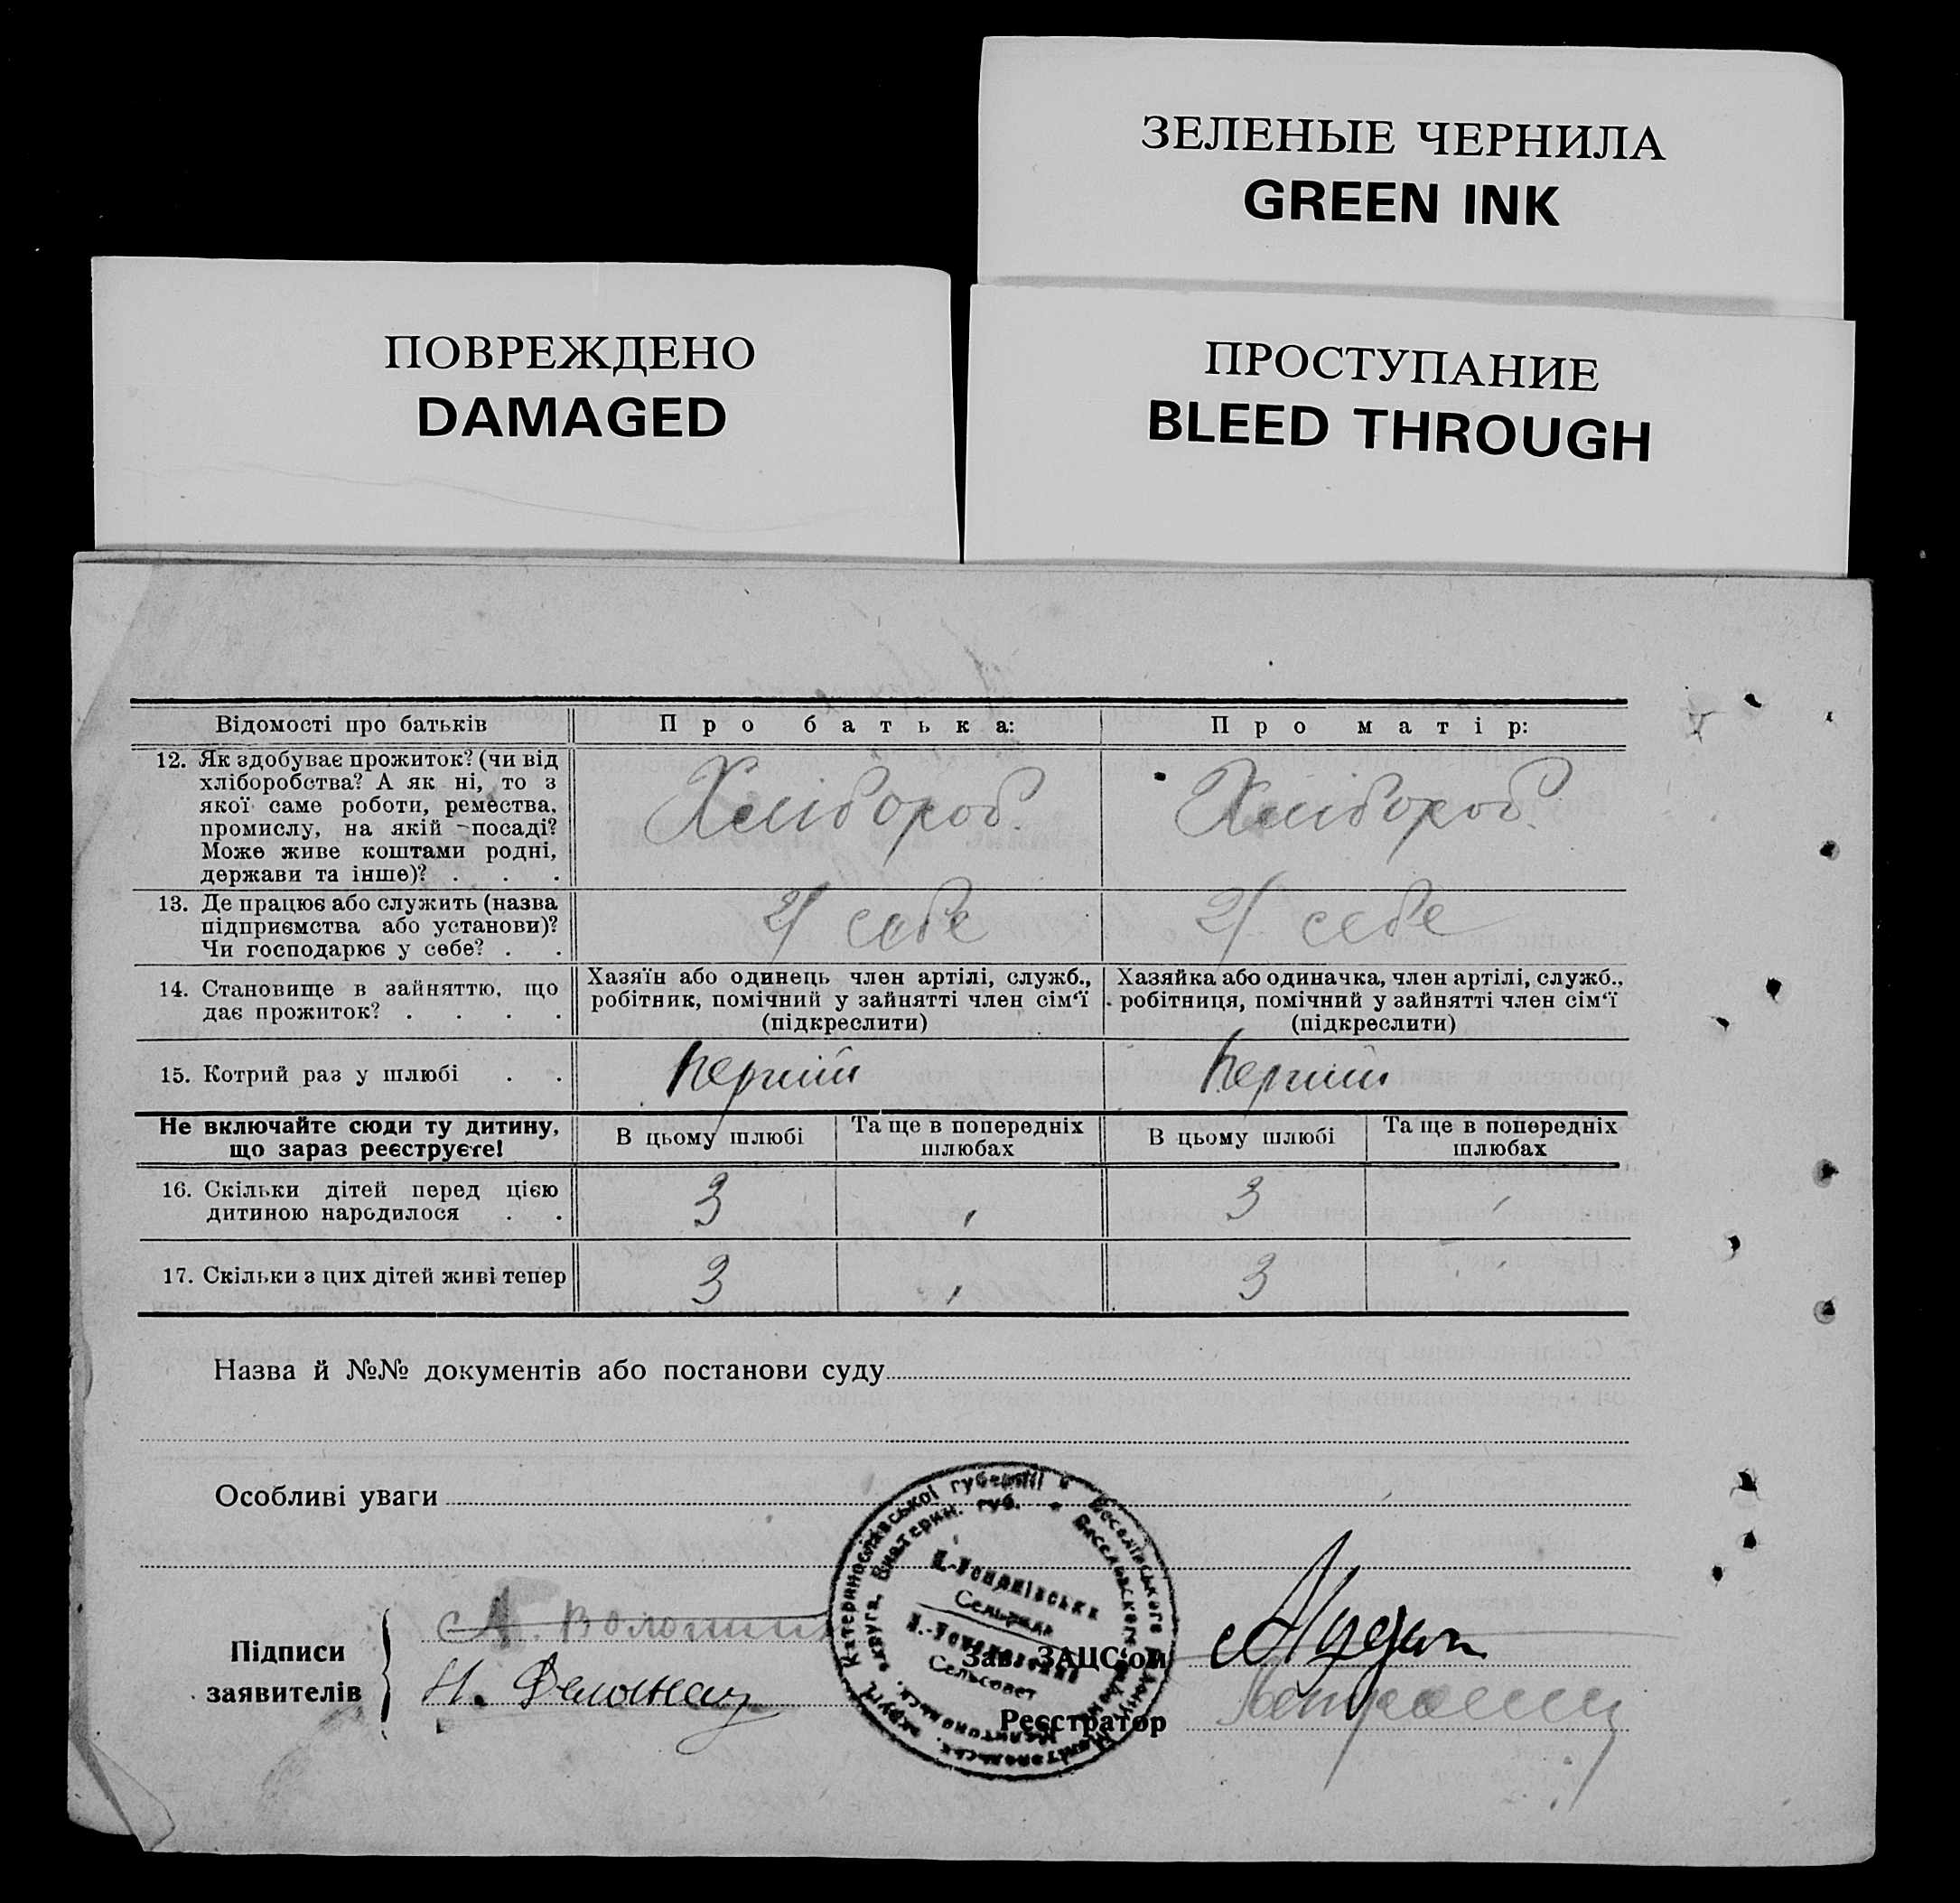 ЗЕЛЕНЫЕ ЧЕРНИЛА
GREEN INK
ПОВРЕЖДЕНО
DAMAGED
ПРОСТУПАНИЕ
BLEED THROUGH
Відомості про батьків
Про батька:
Про матір:
12. Як здобуває прожиток? (чи від
хліборобства? А як ні, то з
якої саме роботи, ремества,
промислу, на якій посаді?
Може живе коштами родні,
держави та інше)? . . .
Хлібороб.
Хлібороб.
13. Де працює або служить (назва
підприємства або установи)?
Чи господарює у себе? . .
у себе
у себе
14. Становище в зайняттю, що
дає прожиток? . . . .
Хазяїн або одинець член артілі, служб.,
робітник, помічний у зайнятті член сім'ї
(підкреслити)
Хазяйка або одиначка, член артілі, служб.,
робітниця, помічний у зайнятті член сім'ї
(підкреслити)
15. Котрий раз у шлюбі . .
перший
перший
Не включайте сюди ту дитину,
що зараз реєструєте!
В цьому шлюбі
Та ще в попередніх
шлюбах
В цьому шлюбі
Та ще в попередніх
шлюбах
16. Скільки дітей перед цією
дитиною народилося . .
3
3
17. Скільки з цих дітей живі тепер
3
3
Назва й №№ документів або постанови суду
Особливі уваги
Підписи
заявителів
А. Волошин
Н.
Катеринославської губернії
Веселівського
Екатерин. губ.
Веселовского
округа,
Сельрада
Сельсовет
Зав. ЗАЦС'ом
Реєстратор